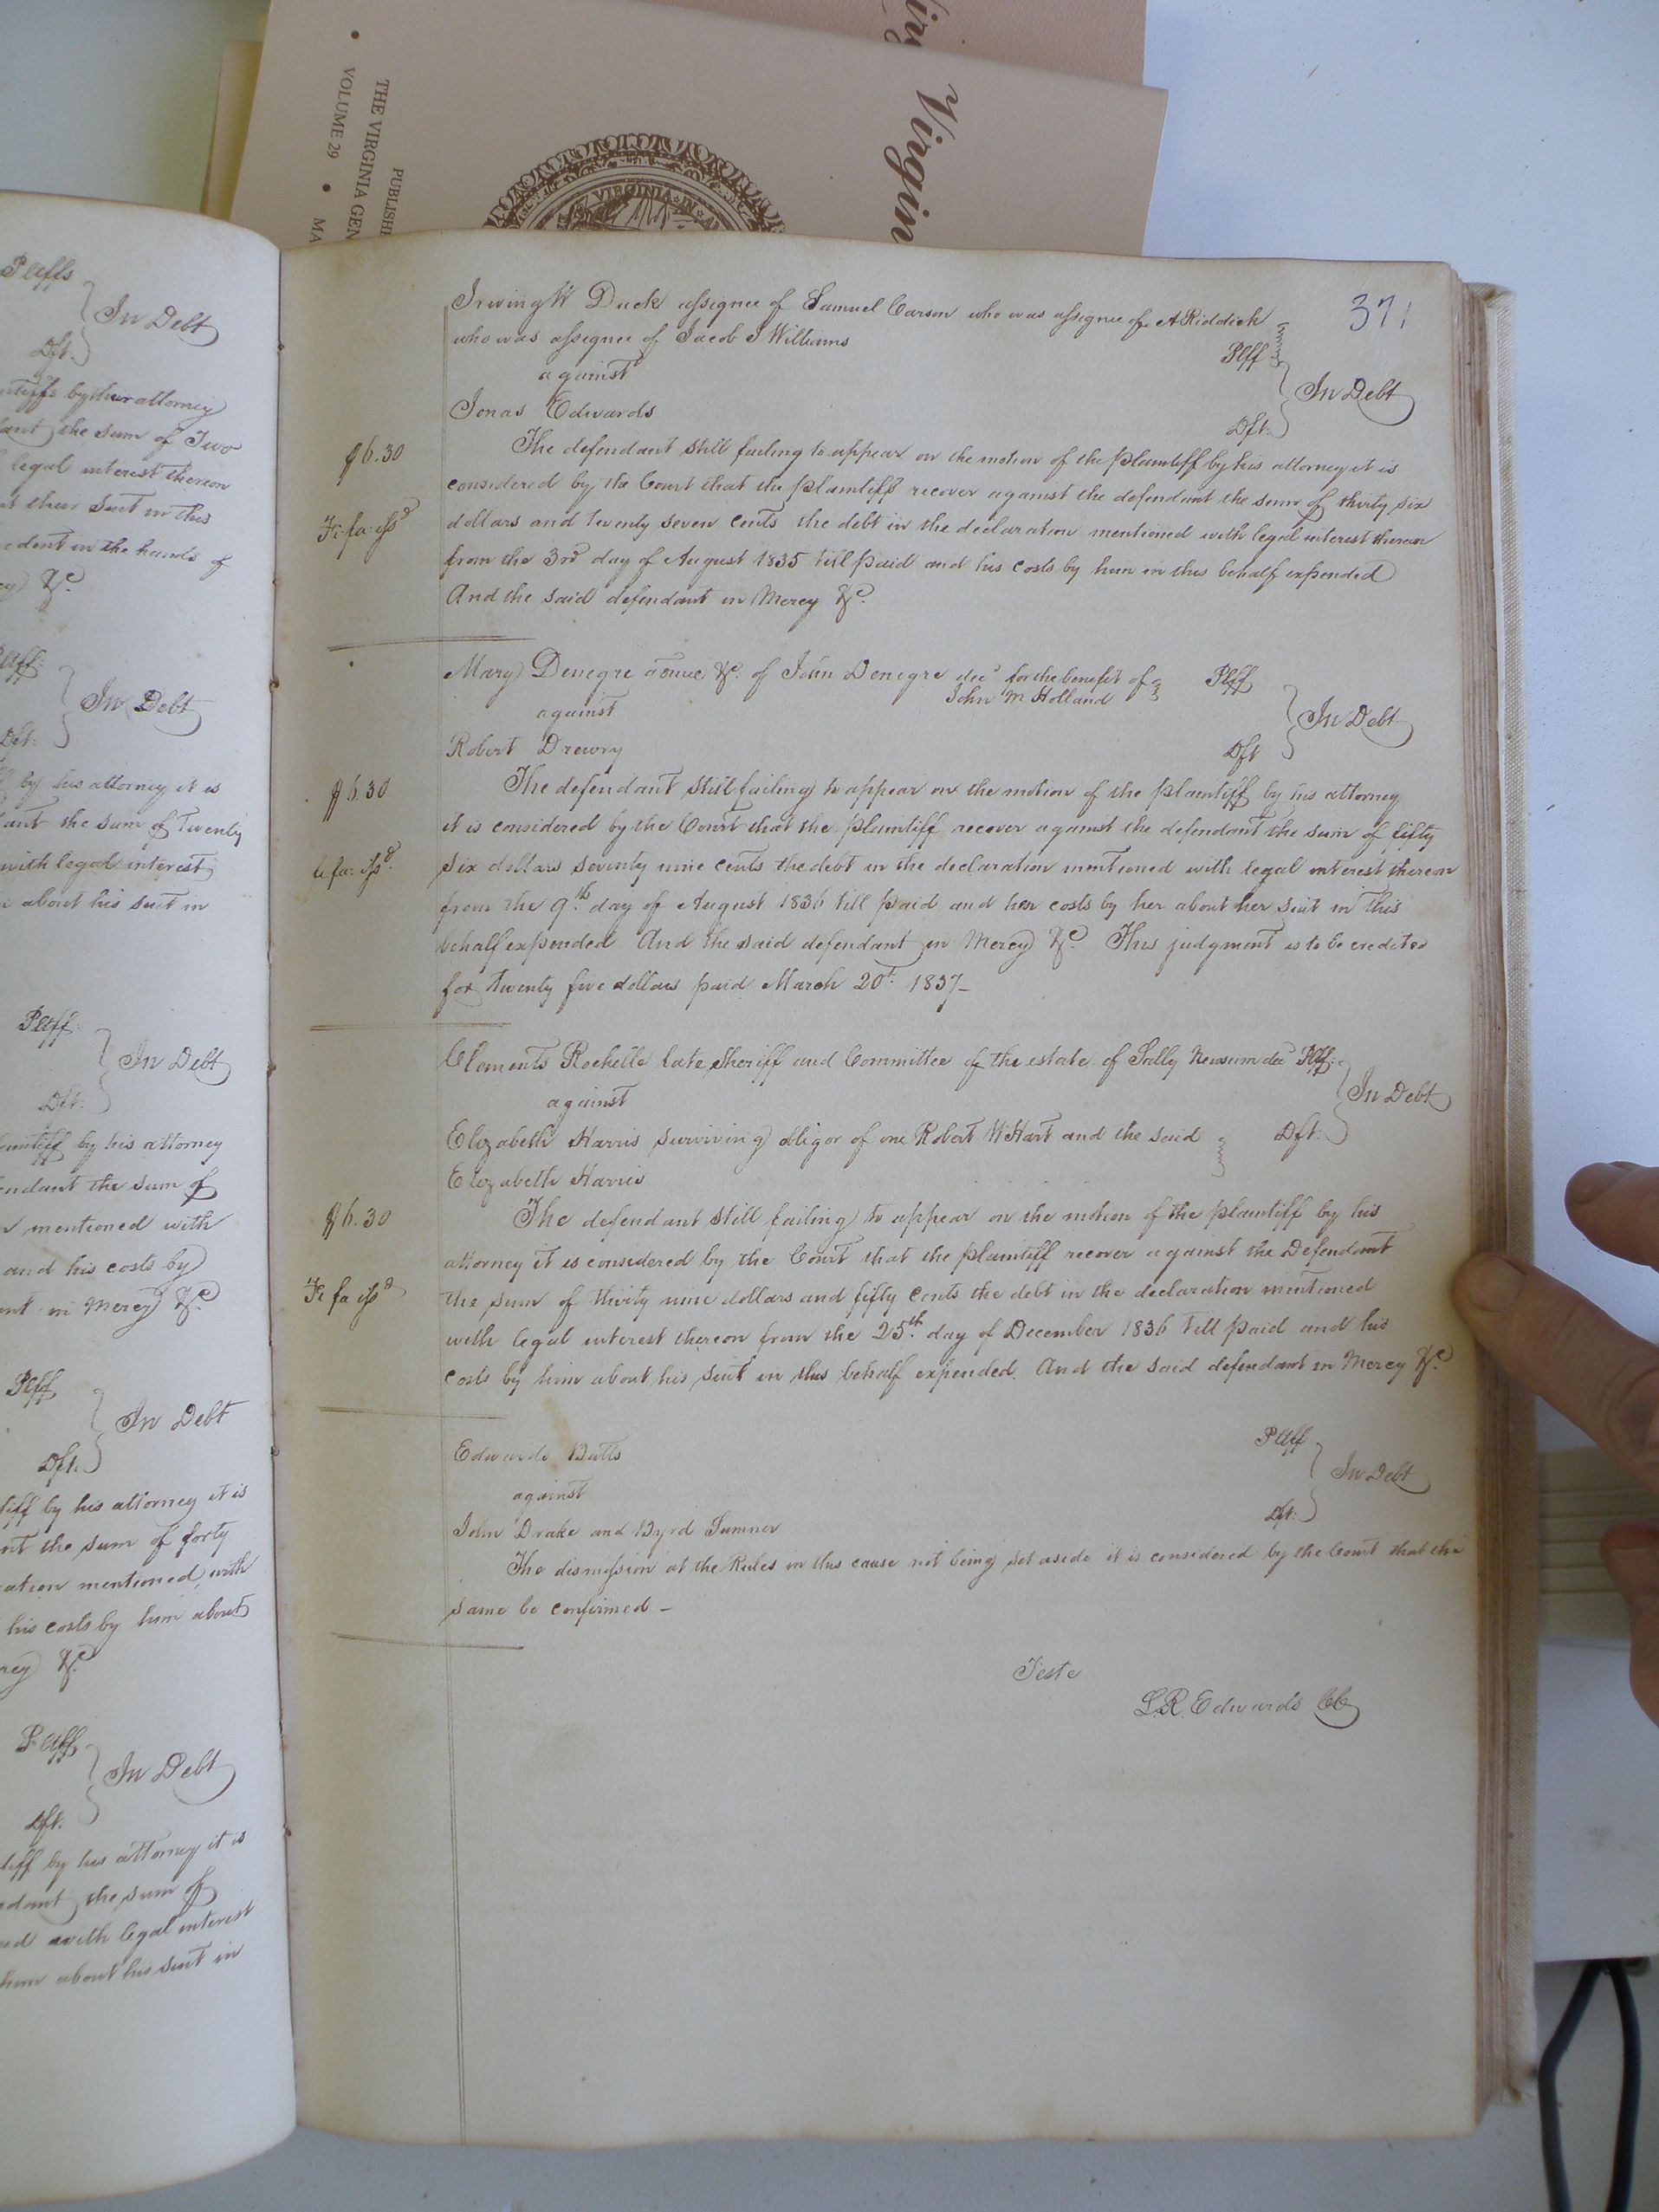 Virgin
PUBLISH
THE VIRGINIA GEN
VOLUME 29 • MA
VIRGINIA IN A
Plffs
In Debt
Dft.
ntiffs by their attorney
dant the sum of Two
legal interest thereon
ut their Suit in this
edent in the hands of
&c.
Plff.
In Debt
Dft.
by his attorney it is
ant the sum of Twenty
with legal interest
about his suit in
Plaff.
In Debt
Dft.
aintiff by his attorney
endant the sum of
n mentioned with
and his costs by
ent in Mercy &c.
Plff
In Debt
Dft.
tiff by his attorney it is
nt the sum of forty
ation mentioned with
his costs by him about
rcy &c.
Plaff.
In Debt
Dft.
tiff by his attorney it is
ndant the sum of
ned with legal interest
him about his suit in
371
Irwing W Duck assignee of Samuel Carson who was assignee of A Riddick
who was assignee of Jacob J Williams Plff
against In Debt
Jonas Edwards Dft.
$6.30 The defendant still failing to appear on the motion of the plaintiff by his attorney it is
considered by the Court that the plaintiff recover against the defendant the sum of thirty six
Fi: fa: issd dollars and twenty seven cents the debt in the declaration mentioned with legal interest thereon
from the 3rd day of August 1835 till paid and his costs by him in this behalf expended
And the said defendant in Mercy &c.
Mary Denegre &c. of John Denegre decd for the benefit of Plff
John M Holland
against In Debt
Robert Drewry Dft
$6.30 The defendant still failing to appear on the motion of the plaintiff by his attorney
it is considered by the Court that the plaintiff recover against the defendant the sum of fifty
fi. fa: issd. six dollars seventy nine cents the debt in the declaration mentioned with legal interest thereon
from the 9th. day of August 1836 till paid and her costs by her about her suit in this
behalf expended And the said defendant in Mercy &c. This judgment is to be credited
for twenty five dollars paid March 20t. 1837-
Clements Rochelle late sheriff and Committee of the estate of Sally Newsum decd Plff.
against In Debt
Elizabeth Harris surviving obligor of one Robert W Hart and the said Dft.
Elizabeth Harris
$6.30 The defendant still failing to appear on the motion of the plaintiff by his
attorney it is considered by the Court that the plaintiff recover against the Defendant
Fi fa issd the sum of thirty nine dollars and fifty cents the debt in the declaration mentioned
with legal interest thereon from the 25th. day of December 1836 till paid and his
costs by him about his suit in this behalf expended. And the said defendant in Mercy &c.
Edwards Butts Plaff
against In Debt
John Drake and Byrd Sumner Dft.
The dismission at the Rules in this cause not being set aside it is considered by the Court that the
same be confirmed -
Teste
L. R. Edwards CC